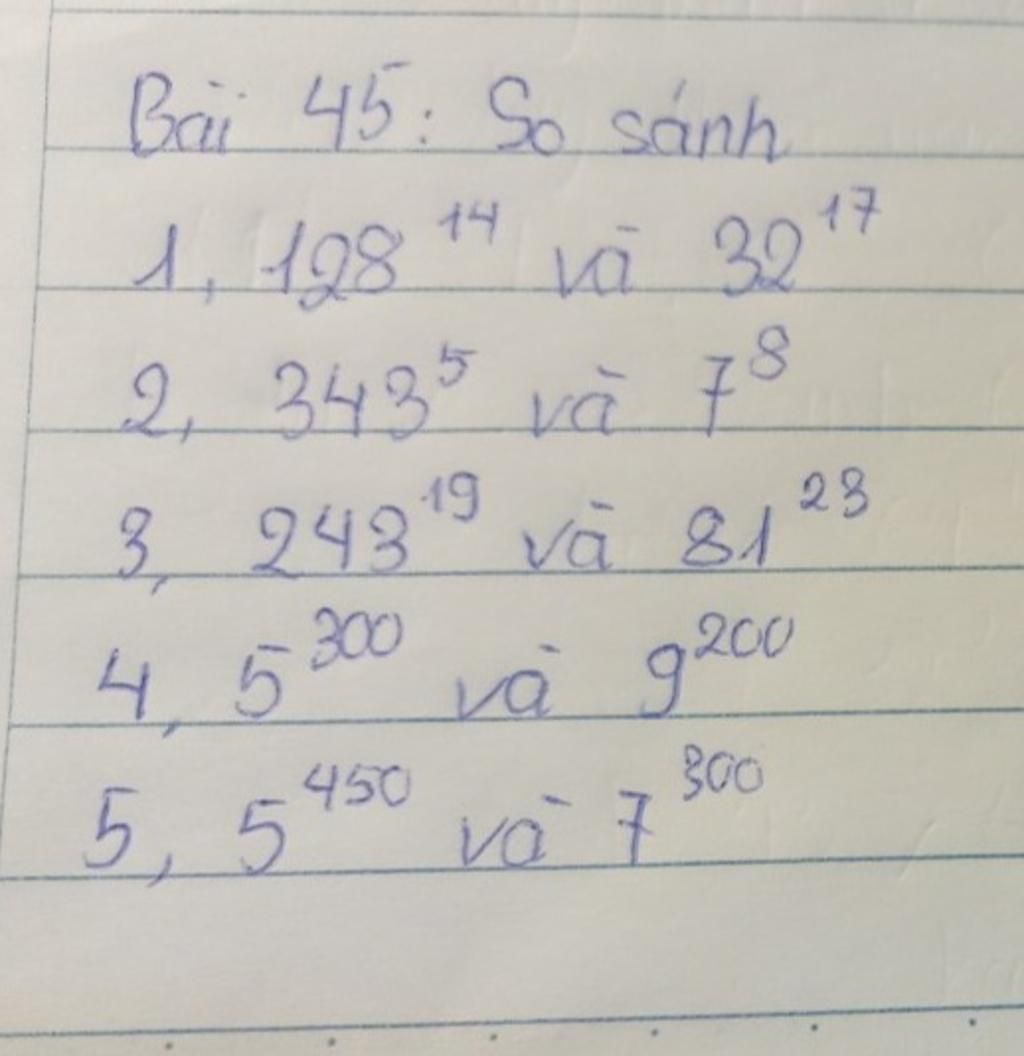 Bài 45: So sánh
1, 128^14 và 32^17
2, 343^5 và 7^8
3, 243^19 và 81^23
4, 5^300 và 9^200
5, 5^450 và 7^300